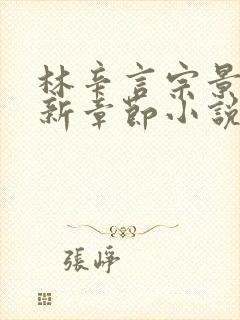 林辛言宗景
新章節小說
張崢